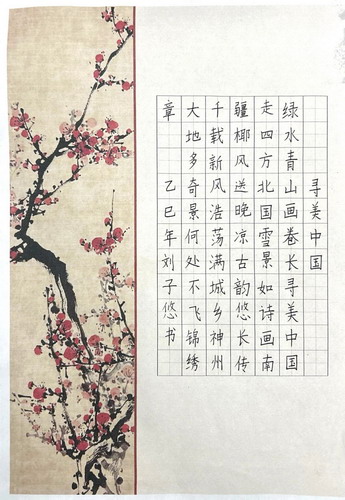 寻美中国
绿水青山画卷长寻美中国
走四方北国雪景如诗画南
疆椰风送晚凉古韵悠长传
千载新风浩荡满城乡神州
大地多奇景何处不飞锦绣
章 乙巳年刘子悠书